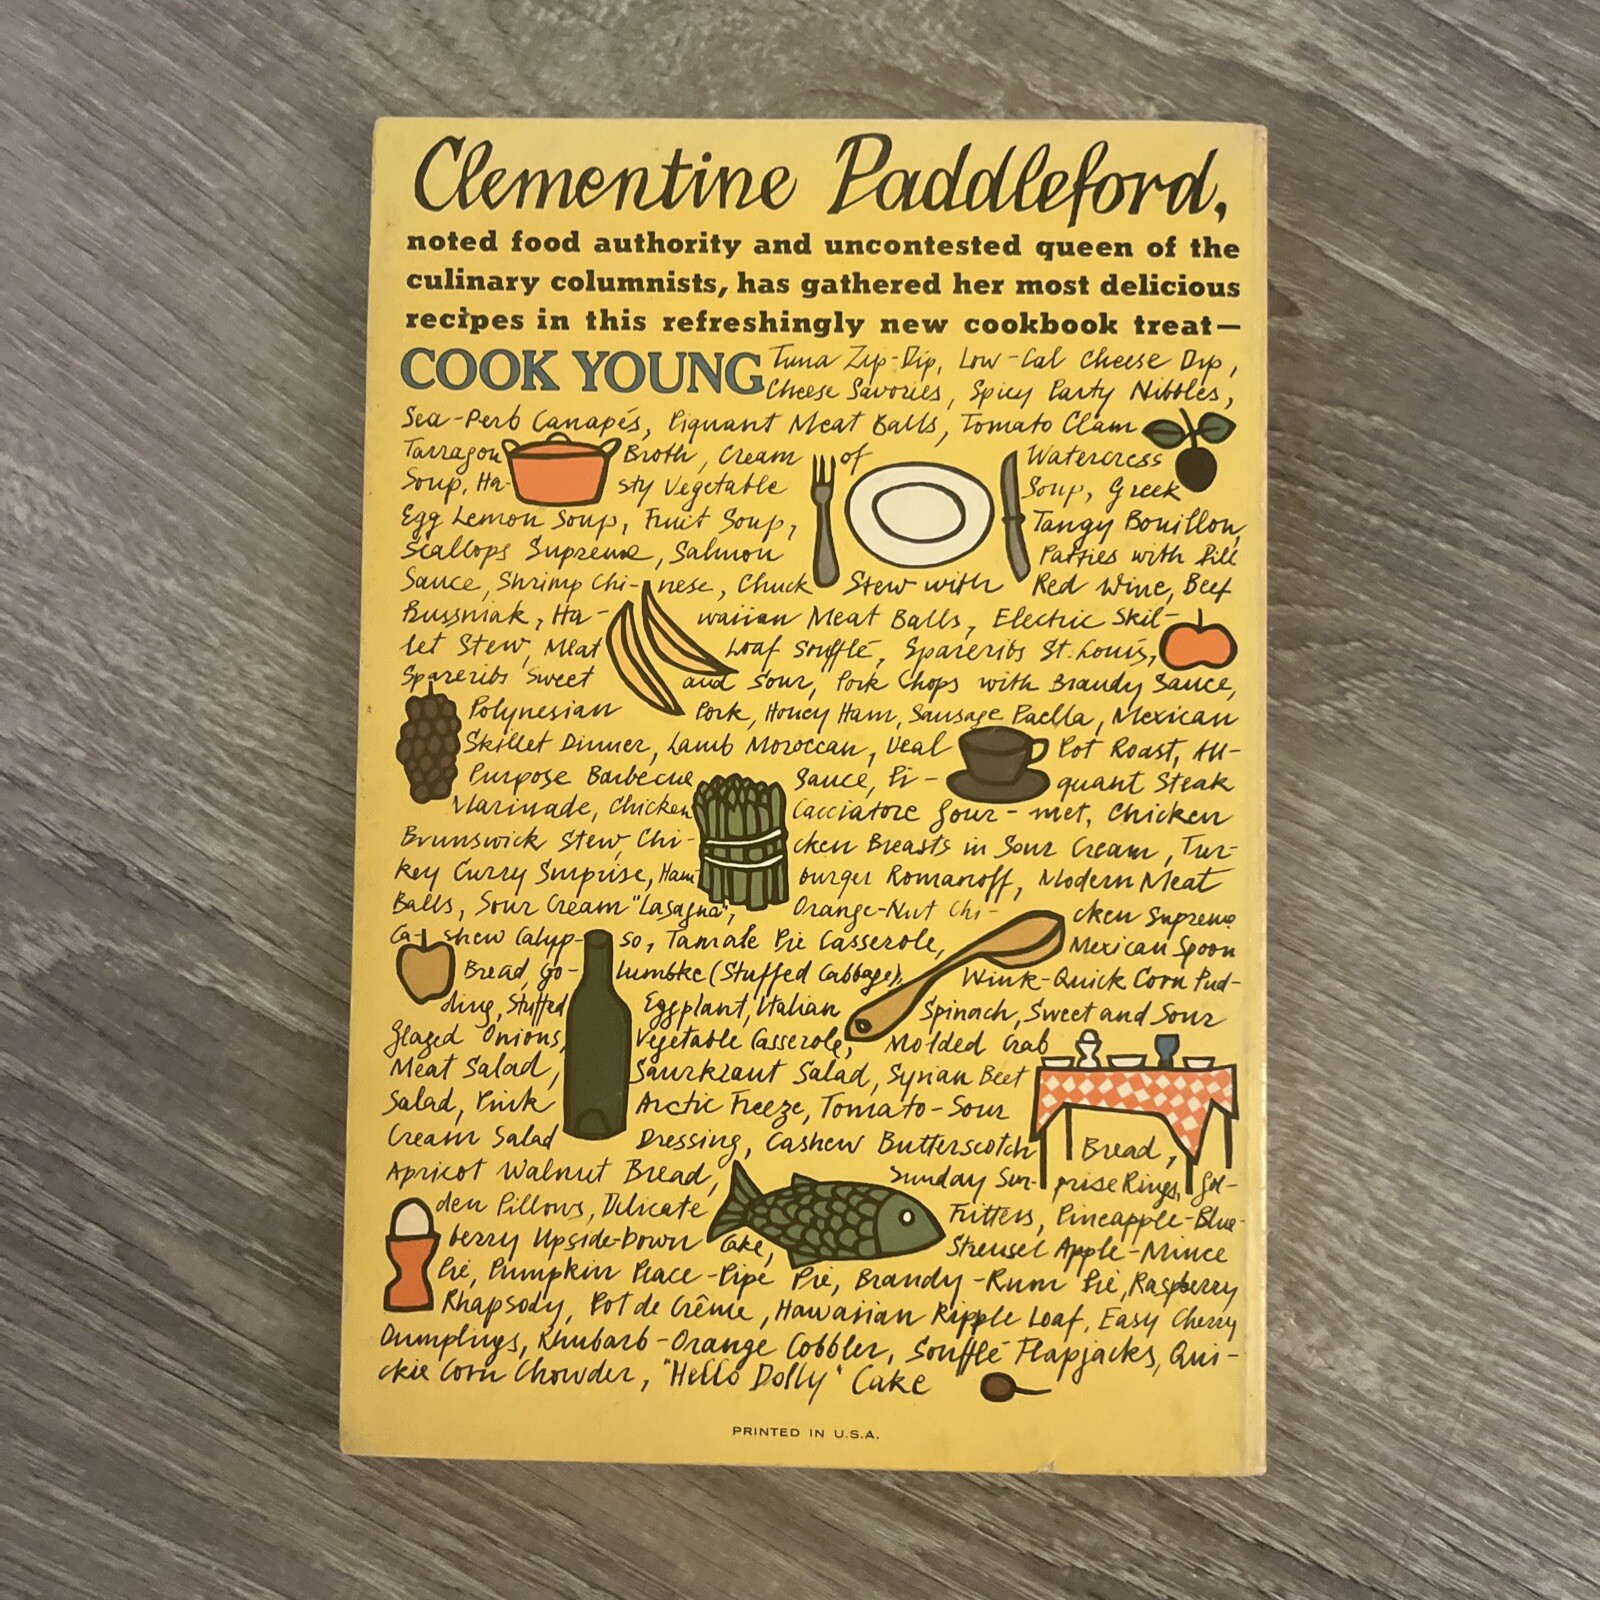 Clementine Paddleford,
noted food authority and uncontested queen of the
culinary columnists, has gathered her most delicious
recipes in this refreshingly new cookbook treat—
COOK YOUNG Tuna Zip-Dip, Low-Cal Cheese Dip,
Cheese Savories, Spicy Party Nibbles,
Sea-Perb Canapés, Piquant Meat Balls, Tomato Clam
Tarragon Broth, Cream of Watercress
Soup, Ha-sty Vegetable Soup, Greek
Egg Lemon Soup, Fruit Soup, Tangy Bouillon,
Scallops Supreme, Salmon Patties with Dill
Sauce, Shrimp Chi-nese, Chuck Stew with Red Wine, Beef
Bussniak, Ha-waiian Meat Balls, Electric Skil-
let Stew, Meat Loaf Soufflé, Spareribs St. Louis,
Spareribs Sweet and Sour, Pork Chops with Brandy Sauce,
Polynesian Pork, Honey Ham, Sausage Paella, Mexican
Skillet Dinner, Lamb Moroccan, Veal Pot Roast, All-
Purpose Barbecue Sauce, Pi-quant Steak
Marinade, Chicken Cacciatore Gour-met, Chicken
Brunswick Stew, Chi-cken Breasts in Sour Cream, Tur-
key Curry Surprise, Ham burger Romanoff, Modern Meat
Balls, Sour Cream "Lasagna", Orange-Nut Chi-cken Supreme
Ca-shew Calyp-so, Tamale Pie Casserole, Mexican Spoon
Bread, Go-lumbke (Stuffed Cabbage), Wink-Quick Corn Pud-
ding, Stuffed Eggplant, Italian Spinach, Sweet and Sour
Glazed Onions, Vegetable Casserole, Molded Crab
Meat Salad, Saurkraut Salad, Syrian Beet
Salad, Pink Arctic Freeze, Tomato-Sour
Cream Salad Dressing, Cashew Butterscotch Bread,
Apricot Walnut Bread, Sunday Sur-prise Rings, Gol-
den Pillows, Delicate Fritters, Pineapple-Blue-
berry Upside-Down Cake, Streusel Apple-Mince
Pie, Pumpkin Peace-Pipe Pie, Brandy-Rum Pie, Raspberry
Rhapsody, Pot de Crême, Hawaiian Ripple Loaf, Easy Cherry
Dumplings, Rhubarb-Orange Cobbler, Soufflé Flapjacks, Qui-
ckie Corn Chowder, "Hello Dolly" Cake
PRINTED IN U.S.A.